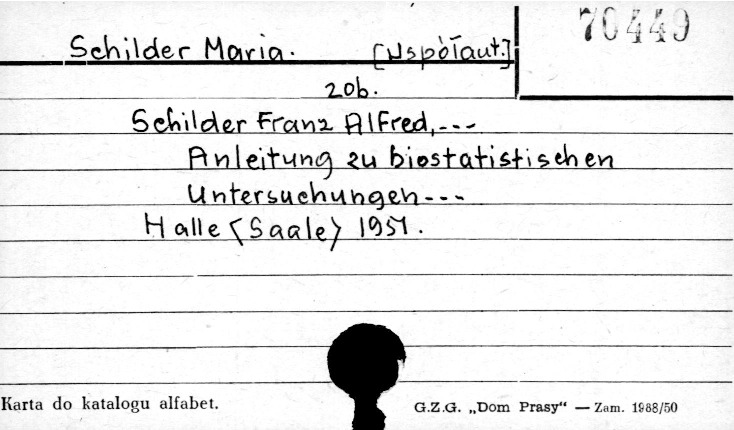 70449
Schilder Maria. [Współaut.]
zob.
Schilder Franz Alfred,---
Anleitung zu biostatistischen
Untersuchungen---
Halle <Saale> 1951.
Karta do katalogu alfabet. G.Z.G. „Dom Prasy“ — Zam. 1988/50